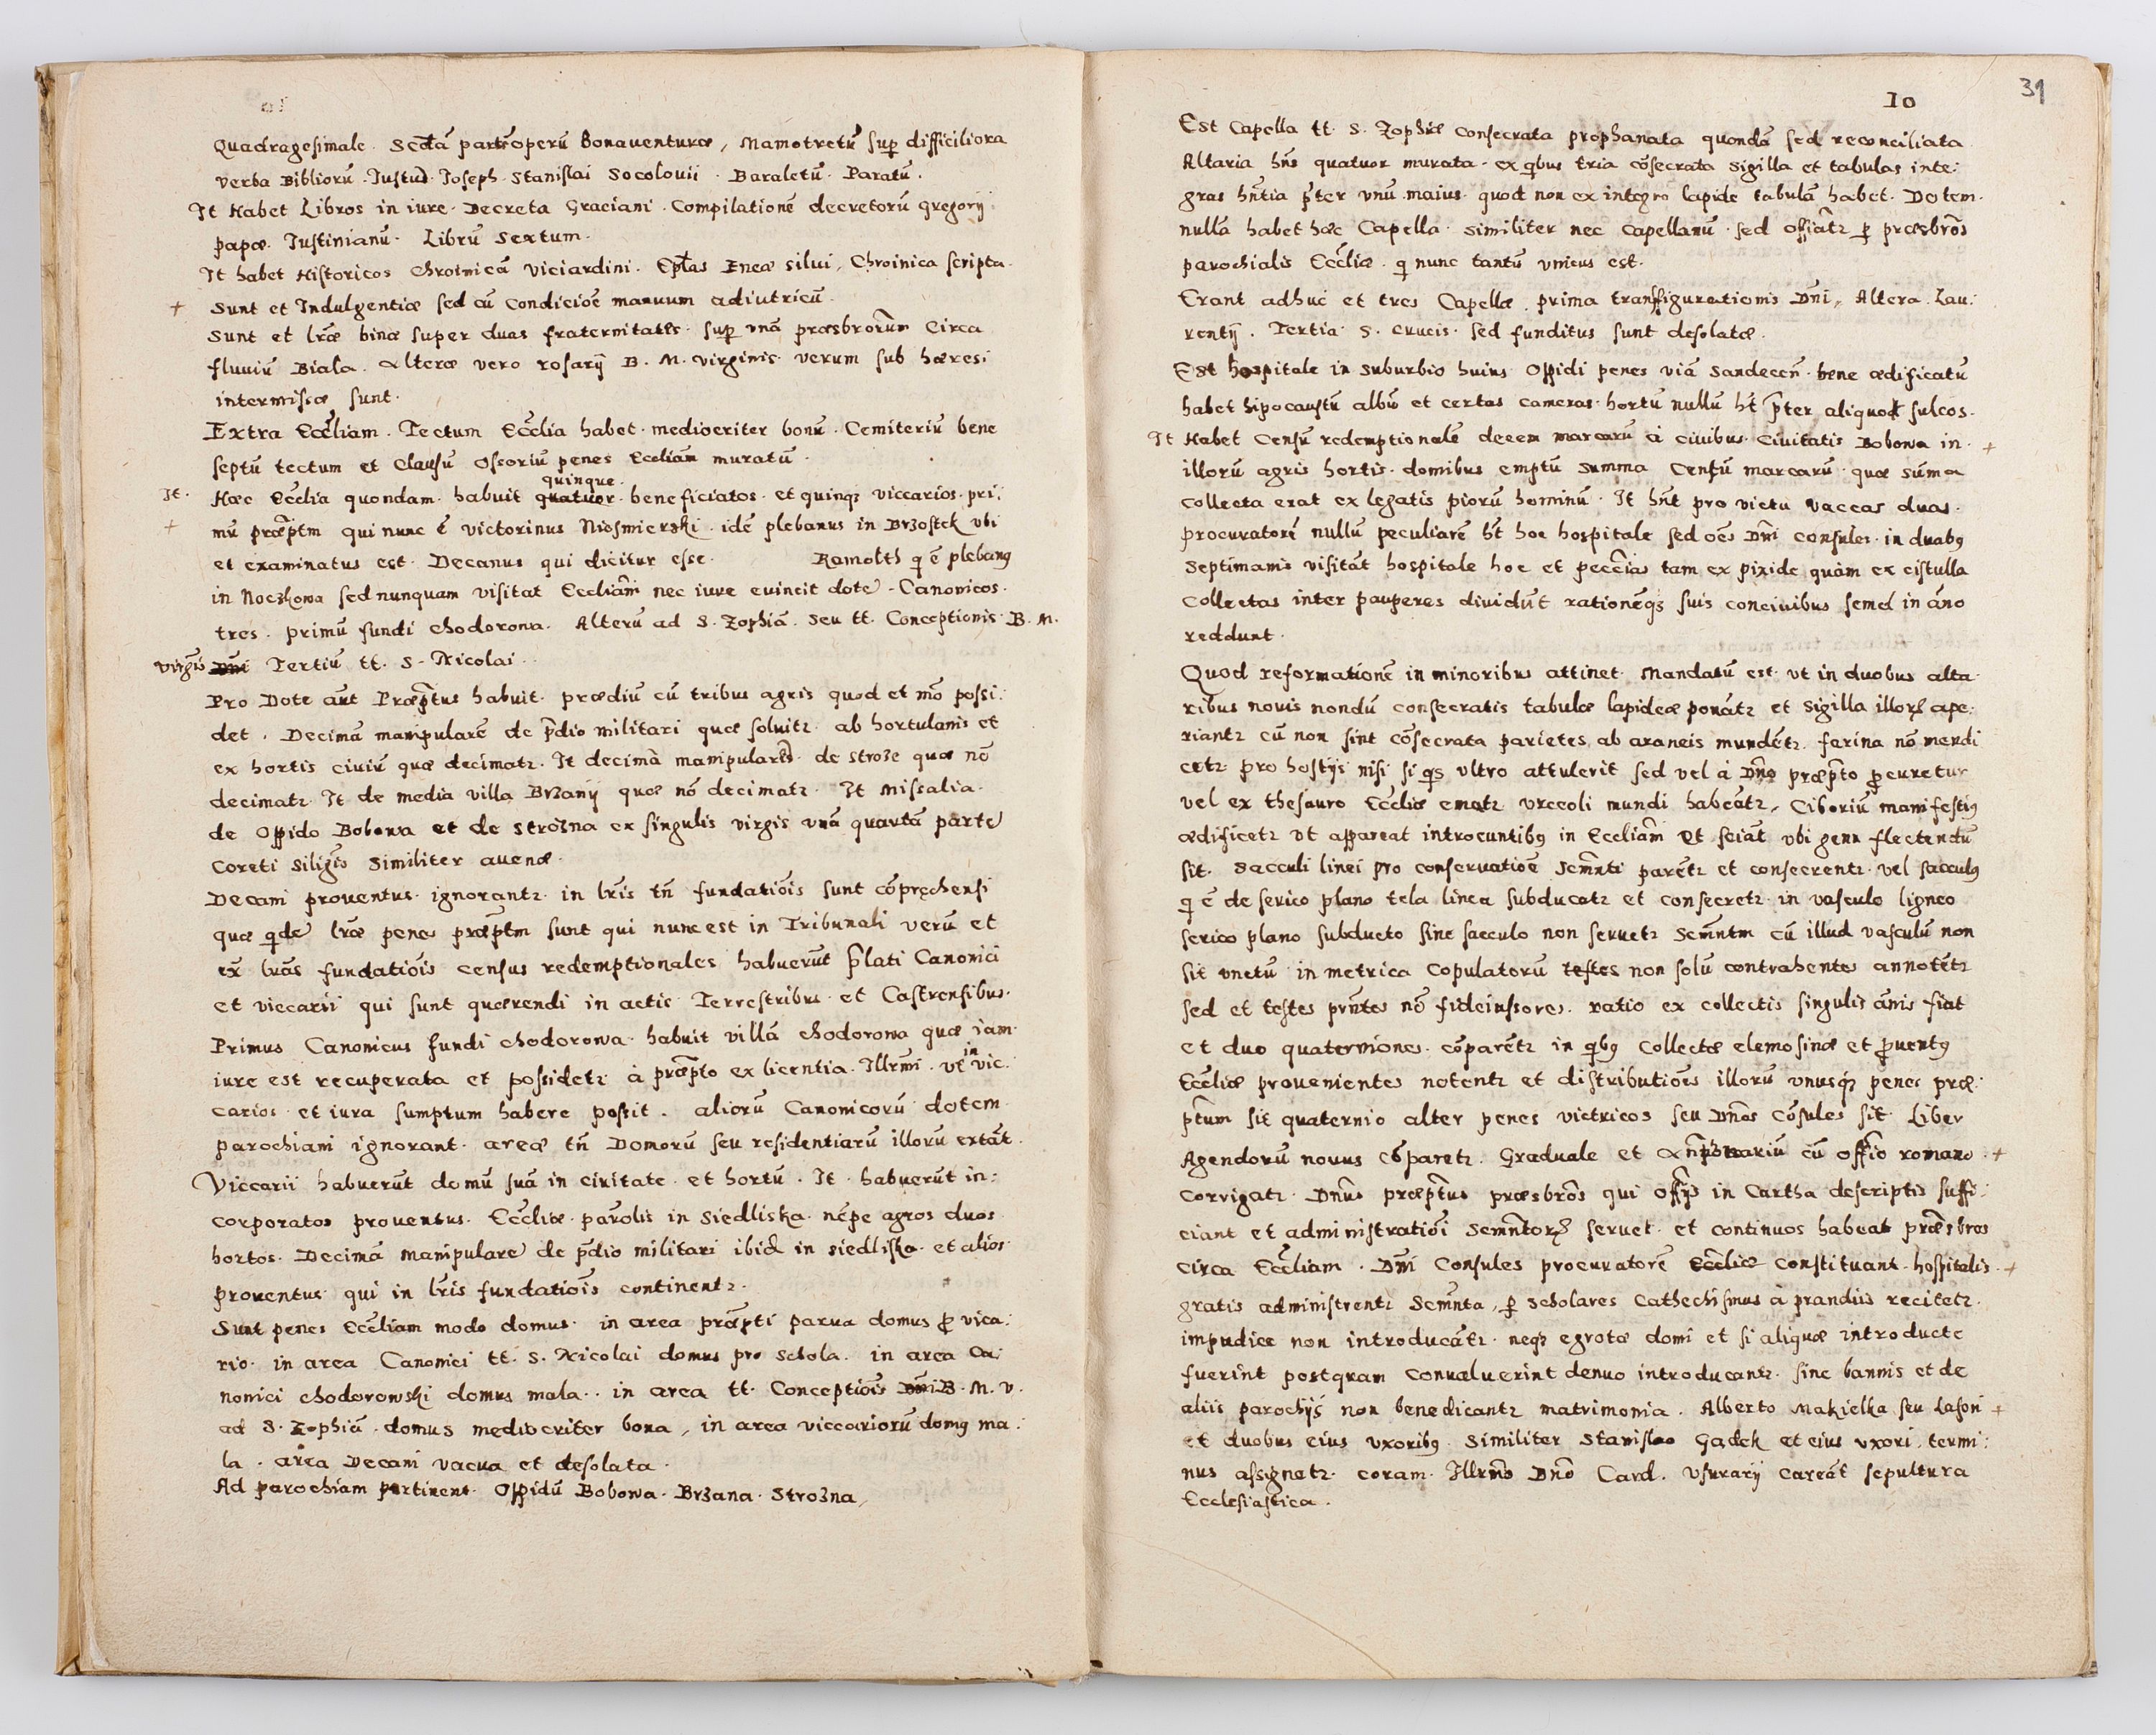 Quadragesimale. Sctā partē operū Bonauenturæ, Mamotretū sup difficiliora
verba Bibliorū. Justus. Joseph. Stanislai Socolouii. Baraletū. Paratū.
Jt Habet Libros in iure. Decreta Graciani. Compilationē decretorū gregorij
papæ. Justinianū. Librū Sextum.
Jt habet Historicos Chroinicā viciardini. Eptas Eneæ silui, Chroinica scripta.
+ Sunt et Indulgentiæ sed cū condicioē manuum adiutricū.
Sunt et lræ binæ super duas fraternitates. sup vnā præsbrorum Circa
fluuiū Biala. alteræ vero rosarij B. M. virginis. verum sub hæresi
intermissæ sunt.
Extra Eccliam. Tectum Ecclia habet. mediocriter bonū. Cemiteriū bene
septū tectum et Clausū Ossoriū penes Eccliam muratū.
quinque
Jt. Hæc Ecclia quondam. habuit quatuor. beneficiatos. et quinqz viccarios. pri:
+ mū præptm qui nunc ē victorinus Niesmierski. idē plebanus in Brzostek vbi
et examinatus est. Decanus qui dicitur esse. Ramolth q ē plebang
in Noczkowa sed nunquam visitat Eccliam nec iure euincit dotē. Canonicos.
tres. primū fundi chodorowa. Alterū ad S. Zophiā. seu tt. Conceptionis B. M.
virgis Dni Tertiū tt. S. Nicolai.
Pro Dote aut Præptus habuit. prædiū cū tribus agris quod et mō possi:
det. Decimā manipularē de pdio militari quæ soluitz. ab hortulanis et
ex hortis ciuiū quæ decimatz. Jt decimā manipularē de stroze quæ nō
decimatz. Jt de media villa Brzanij quæ nō decimatz. Jt Missalia.
de Oppido Bobowa et de Strozna ex singulis virgis vnā quartā partē
coreti siligis similiter auenæ.
Decani prouentus. ignorantz. in lris tn fundatiois sunt cōpręhensi
quæ qde lræ penes præptm sunt qui nunc est in Tribunali verū et
ex lras fundatiois census redemptionales habuerūt plati Canonici
et viccarii qui sunt quærendi in actis Terrestribus et Castrensibus.
Primus Canonicus fundi chodorowa. habuit villā chodorowa quæ iam.
in
iure est recuperata et possidetz à præpto ex licentia. Illrmi. vt vic:
carios et iura sumptum habere possit. aliorū Canonicorū dotem
parochiani ignorant. areæ tn Domorū seu residentiarū illorū extāt.
Viccarii habuerūt domū suā in ciuitate. et hortū. Jt. habuerūt in:
corporatos prouentus. Eccliæ. parolis in Siedliska. nēpe agros duos
hortos. Decimā manipularē de pdio militari ibid in siedliska. et alios
prouentus qui in lris fundatiois continentz.
Sunt penes Eccliam modo domus. in area præpti parua domus p vica:
rio. in area Canonici tt. S. Nicolai domus pro schola. in area Ca:
nonici chodorowski domus mala.. in area tt. Conceptiois Dni B. M. v.
ad S. Zophiā. domus mediocriter bona, in area viccariorū domg ma:
la. area Decani vacua et desolata.
Ad parochiam pertinent. Oppidū Bobowa. Brzana. Strozna,
10
31
Est Capella tt. S. Zophiæ consecrata prophanata quondā sed reconciliata.
Altaria hns quatuor murata. ex qbus tria cōsecrata sigilla et tabulas inte:
gras hntia pter vnū. maius. quod non ex integro lapide tabulā habet. Dotem.
nullā habet hæc Capella. similiter nec capellanū. sed offiatz p præsbros
parochialis Eccliæ. q nunc tantū vnicus est.
Erant adhuc et tres Capellæ. prima transfigurationis Dni, Altera. Lau:
rentij. Tertia S. crucis. sed funditus sunt desolatæ.
Est hospitale in suburbio huius Oppidi penes viā Sandecen. bene ædificatū
habet hipocaustū albū et certas cameras. hortū nullū ht pter aliquod sulcos.
Jt Habet Censū redemptionalē decem marcarū à ciuibus. Ciuitatis Bobowa in. +
illorū agris hortis. domibus emptū summa Centū marcarū. quæ sūma
collecta erat ex legatis piorū hominū. Jt hnt pro victu vaccas duas.
procuratorē nullū peculiarē ht hoc hospitale sed oēs Dni consules. in duabg
septimanis visitāt hospitale hoc et peccias tam ex pixide quàm ex cistulla
collectas inter pauperes diuidūt rationēqz suis conciuibus semel in āno
reddunt.
Quod reformationē in minoribus attinet. Mandatū est. vt in duobus alta.
ribus nouis nondū consecratis tabulæ lapideæ ponātz et sigilla illorz ape:
riantz cū non sint cōsecrata parietes ab araneis mundētz. farina nō mendi
cetz pro hostijs nisi si qs vltro attulerit sed vel à Dno præpto pcuretur
vel ex thesauro Eccliæ ematz vrceoli mundi habeātz, Ciboriū manifestig
ædificetz vt appareat introeuntibg in Eccliam et sciāt vbi genu flectendū
sit. sacculi linei pro conseruatioē Semnti parētz et consecrentz. vel sacculg
q ē de serico plano tela linea subducatz et consecretz. in vasculo ligneo
serico plano subducto sine sacculo non seruetz Semntm cū illud vasculū non
sit vnctū in metrica Copulatorū testes non solū contrahentes annotētz
sed et testes pntes nō fideiussores. ratio ex collectis singulis ānis fiat
et duo quaterniones. cōparētz in qbg collectæ elemosinæ et puentg
Eccliæ prouenientes notentz et distributioēs illorū vnusqz penes præ:
ptum sit quaternio alter penes victricos seu Dnos Cōsules sit. Liber
Agendorū nouus cōparetz. Graduale et Antiphonariū cū Offio romano. +
corrigatz. Dnus præptus præsbros qui offijs in Cartha descriptis suffi:
ciant et administratioi Semntorz seruet. et continuos habeat præsbros
circa Eccliam. Dni Consules procuratorē Eccliæ constituant. hospitalis. +
gratis administrentz Semnta, p scholares Cathechismus à prandiis recitetz.
impudicæ non introducātz. neqz egrotæ domi et si aliquæ introductæ
fuerint postquam conualuerint denuo introducantz. sine bannis et de
aliis parochijs non benedicantz matrimonia. Alberto Makielka seu Lason +
et duobus eius vxoribg. Similiter Stanislao Gadek et eius vxori. termi:
nus assignetz. coram. Illrmo Dno Card. Vsurarij careāt sepultura
Ecclesiastica.